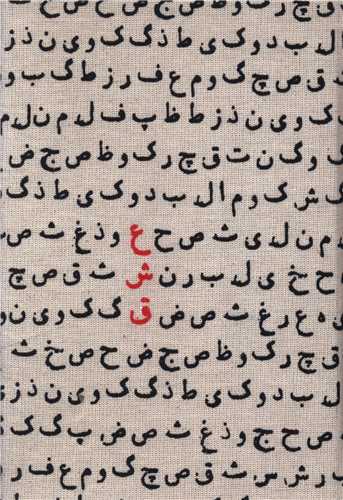 ق چ ر ک و ظ ص ج ض ح ص
ا ل ب د و ک ی ط ذ گ ک و ی ن ذ ز
ث ق ص چ گ و م ع ف ا ر ز ط گ ب و
ک و ی ن ذ ز ط ظ پ ف ل م ن ل م
ک و گ ن ت ق چ ر ک و ظ ص ج ض
گ ش ک و م ا ل ب د و ک ی ط ذ گ
م ن ل ی ث ص ح ع و ذ غ ث ص
ح خ ی ل ب ر ن ش ث ق ص چ
ی ه ع ر غ ث ص ض ق گ ک و ی ن و
ق چ ر ک و ظ ص ج ض ح ص خ ث
ا ل ب د و ک ی ط ذ گ ک و ی ن ذ ز
ص ح ج و ذ غ ث ص ض پ گ ک
ب ر ش س ث ق ص چ گ و م ع ف ا ر